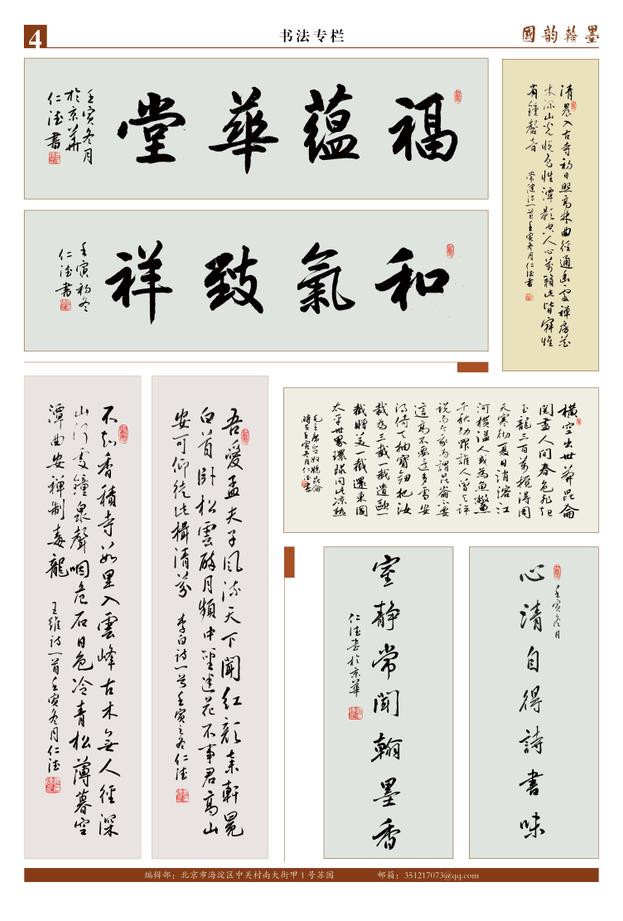 4
书法专栏
國韵翰墨
福蕴華堂
壬寅冬月
於京華
仁德書
清晨入古寺初日照高林曲径通幽處禅房花
木深山光悦鸟性潭影空人心萬籁此皆寂惟
有鐘磬音
常建诗一首壬寅冬月仁德書
和氣致祥
壬寅初冬
仁德書
橫空出世莽昆侖
阅盡人间春色飛起
玉龍三百萬攪得周
天寒彻夏日消溶江
河横溢人或為魚鱉
千秋功罪誰人曾与评
说而今我為謂昆侖不要
這高不要這多雪安
得倚天抽寶剑把汝
裁為三截一截遺歐一
截赠美一截還東國
太平世界環球同此凉热
吾愛孟夫子风流天下聞红颜棄軒冕
白首卧松雲醉月频中聖迷花不事君高山
安可仰徒此揖清芬
李白诗一首壬寅之冬仁德
不知香積寺数里入雲峰古木无人徑深
山何處鐘泉聲咽危石日色冷青松薄暮空
潭曲安禅制毒龍
王维诗一首壬寅冬月仁德
心清自得詩書味
壬寅冬月
室静常聞翰墨香
仁德書於京華
编辑部：北京市海淀区中关村南大街甲1号苏园
邮箱：351217073@qq.com